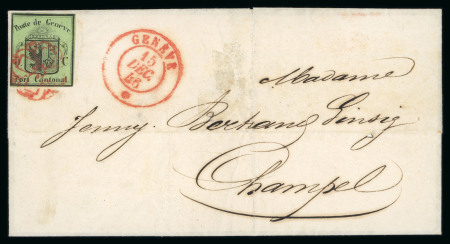 Poste de Genève
5 C
Port Cantonal
GENÈVE
15
DÉC.
45
Madame
Jenny Bertrand
Champel